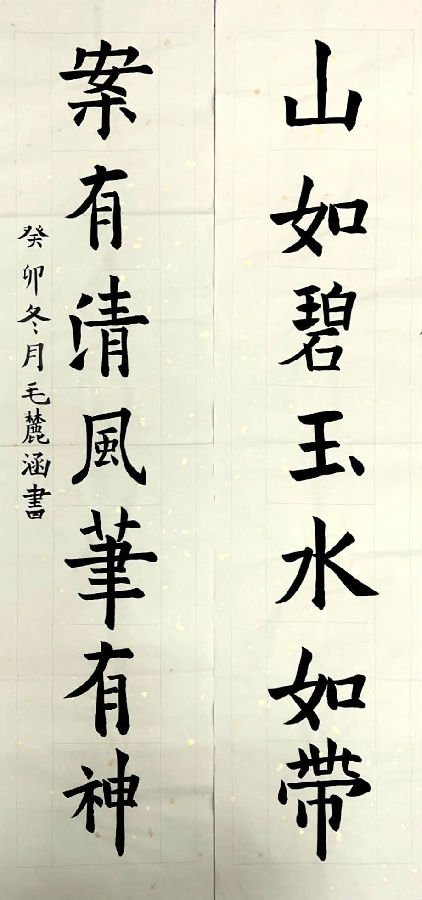 山如碧玉水如帶
案有清風筆有神
癸卯冬月毛麓涵書